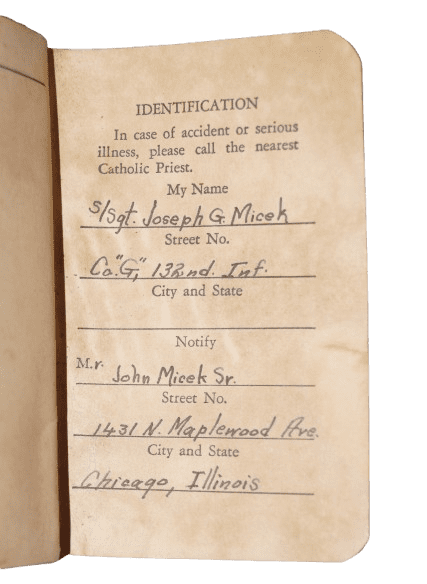 IDENTIFICATION
In case of accident or serious
illness, please call the nearest
Catholic Priest.
My Name
S/Sgt. Joseph G. Micek
Street No.
Co. "G," 132nd. Inf.
City and State
Notify
Mr. John Micek Sr.
Street No.
1431 N. Maplewood Ave.
City and State
Chicago, Illinois